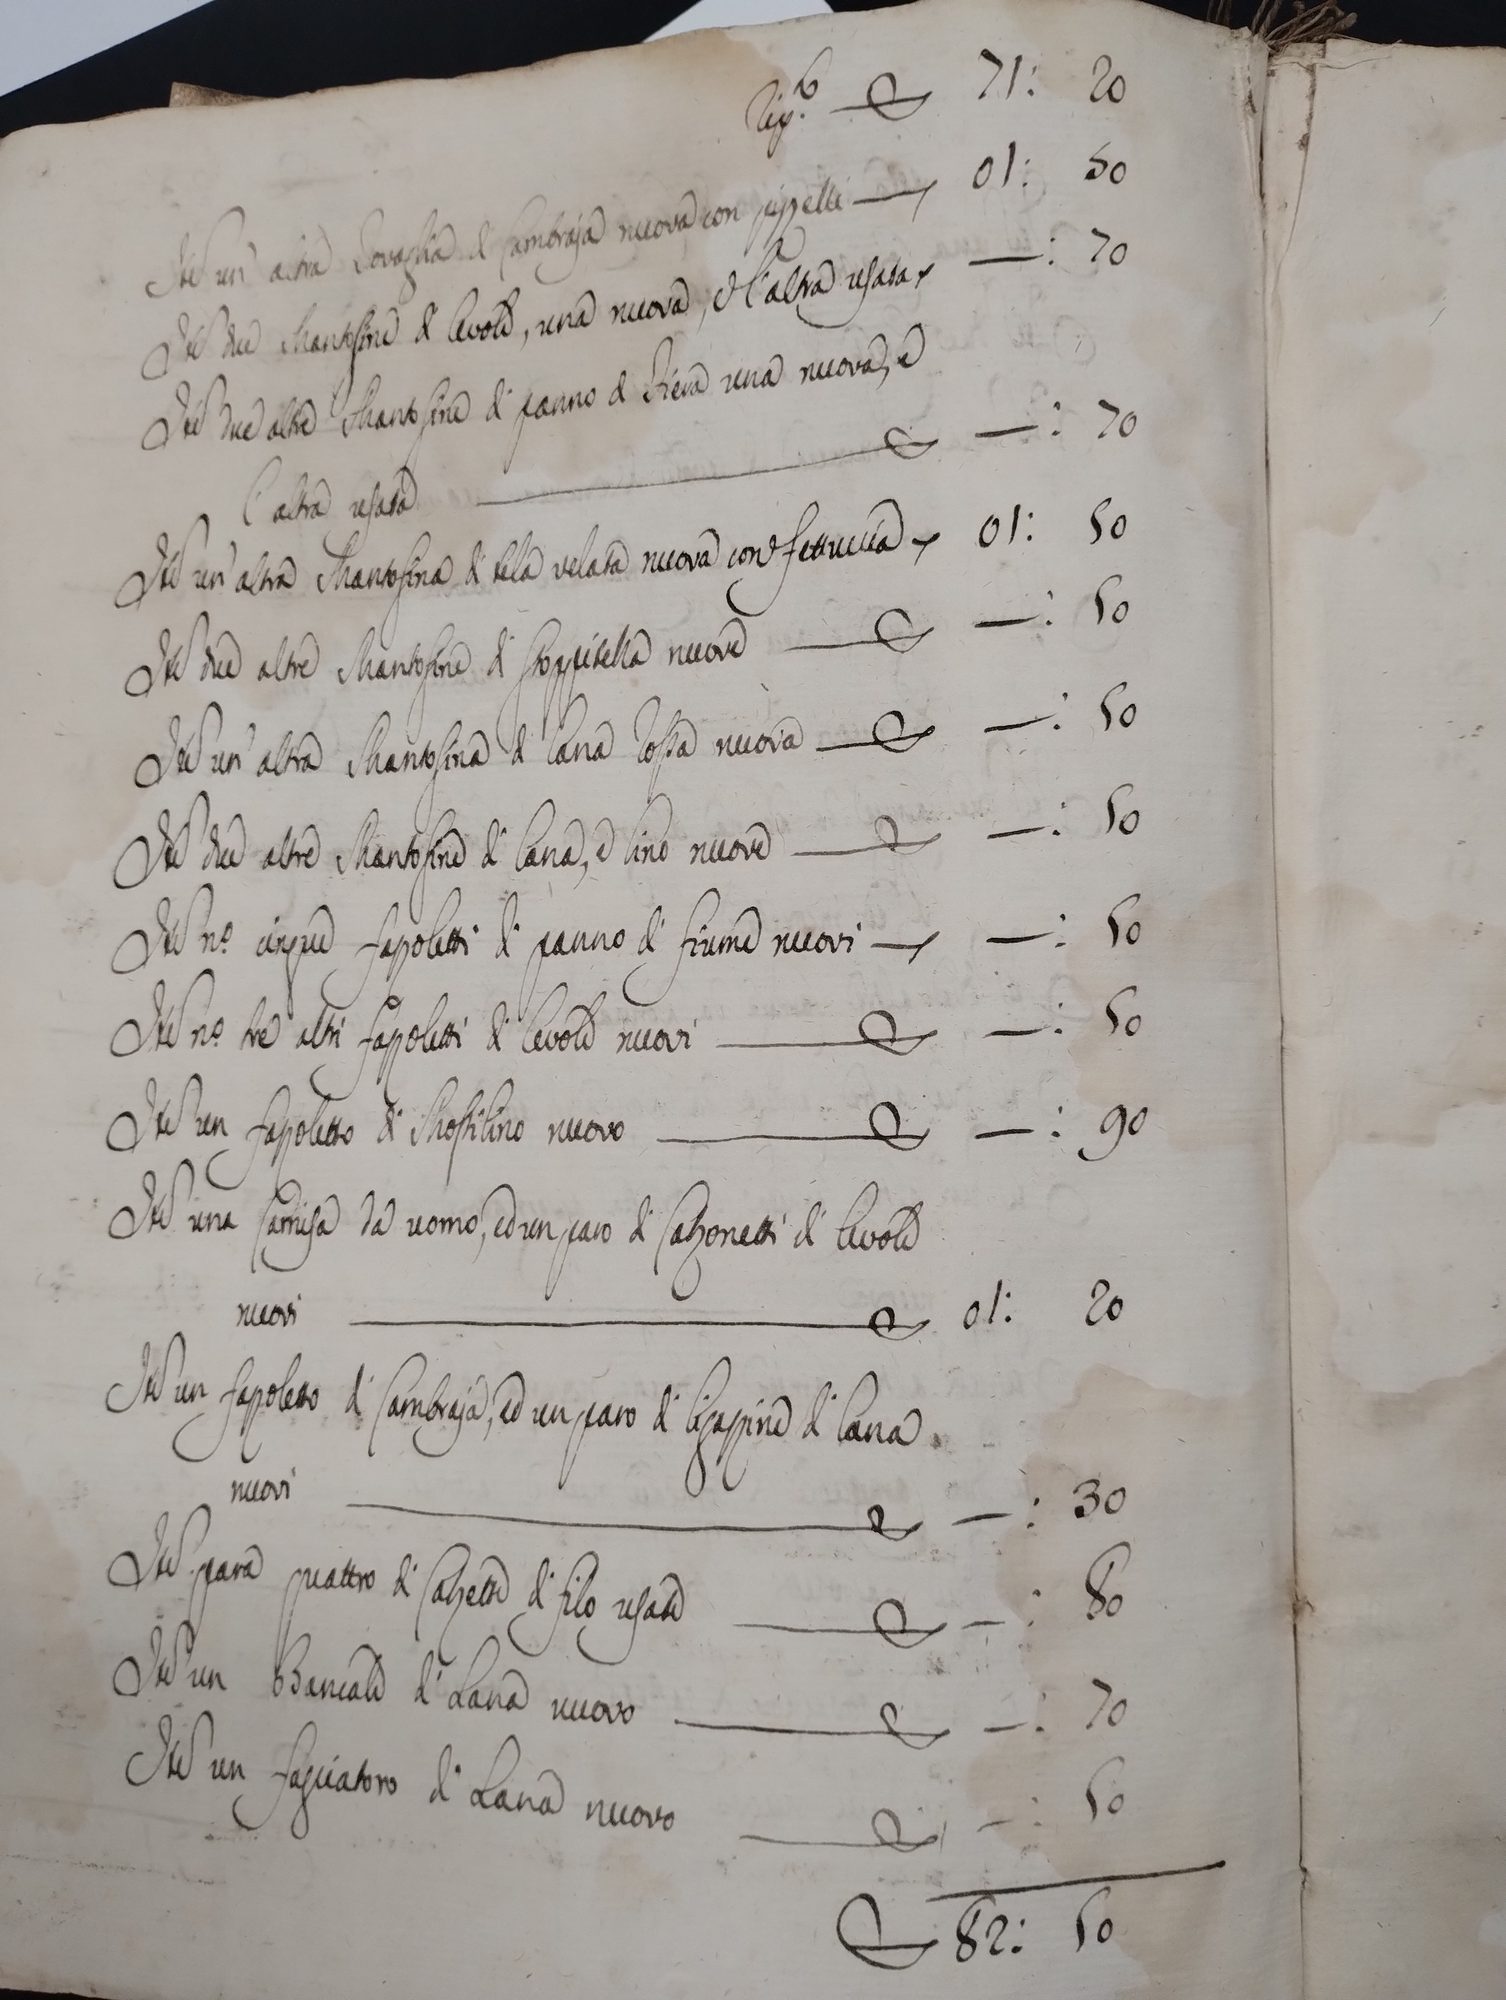 Rip.to D 71: 20
Itē un' altra Tovaglia di Cambraja nuova con pizzilli — 01: 50
Itē due Mantesine di levold, una nuova, e l'altra usata — : 70
Itē due altre Mantesine di panno di Fiera una nuova, e
l'altra usata D — : 70
Itē un' altra Mantesina di tela velata nuova con fettuccia 01: 50
Itē due altre Mantesine di stoppitella nuove D — : 50
Itē un' altra Mantesina di lana rossa nuova D — : 50
Itē due altre Mantesine di lana, e lino nuove D — : 50
Itē n.o cinque fazzoletti di panno di fiume nuovi — : 50
Itē n.o tre altri fazzoletti di levold nuovi D — : 50
Itē un fazzoletto di nuovo D — : 90
Itē una Camisa da uomo, ed un paro di Calzonetti di levold
nuovi D 01: 20
Itē un fazzoletto di Cambraja, ed un paro di di lana
nuovi D — : 30
Itē para quattro di Calzette di filo usate D — : 80
Itē un Bancale di Lana nuovo D — : 70
Itē un fasciatoro di Lana nuovo D — : 50
D 82: 50